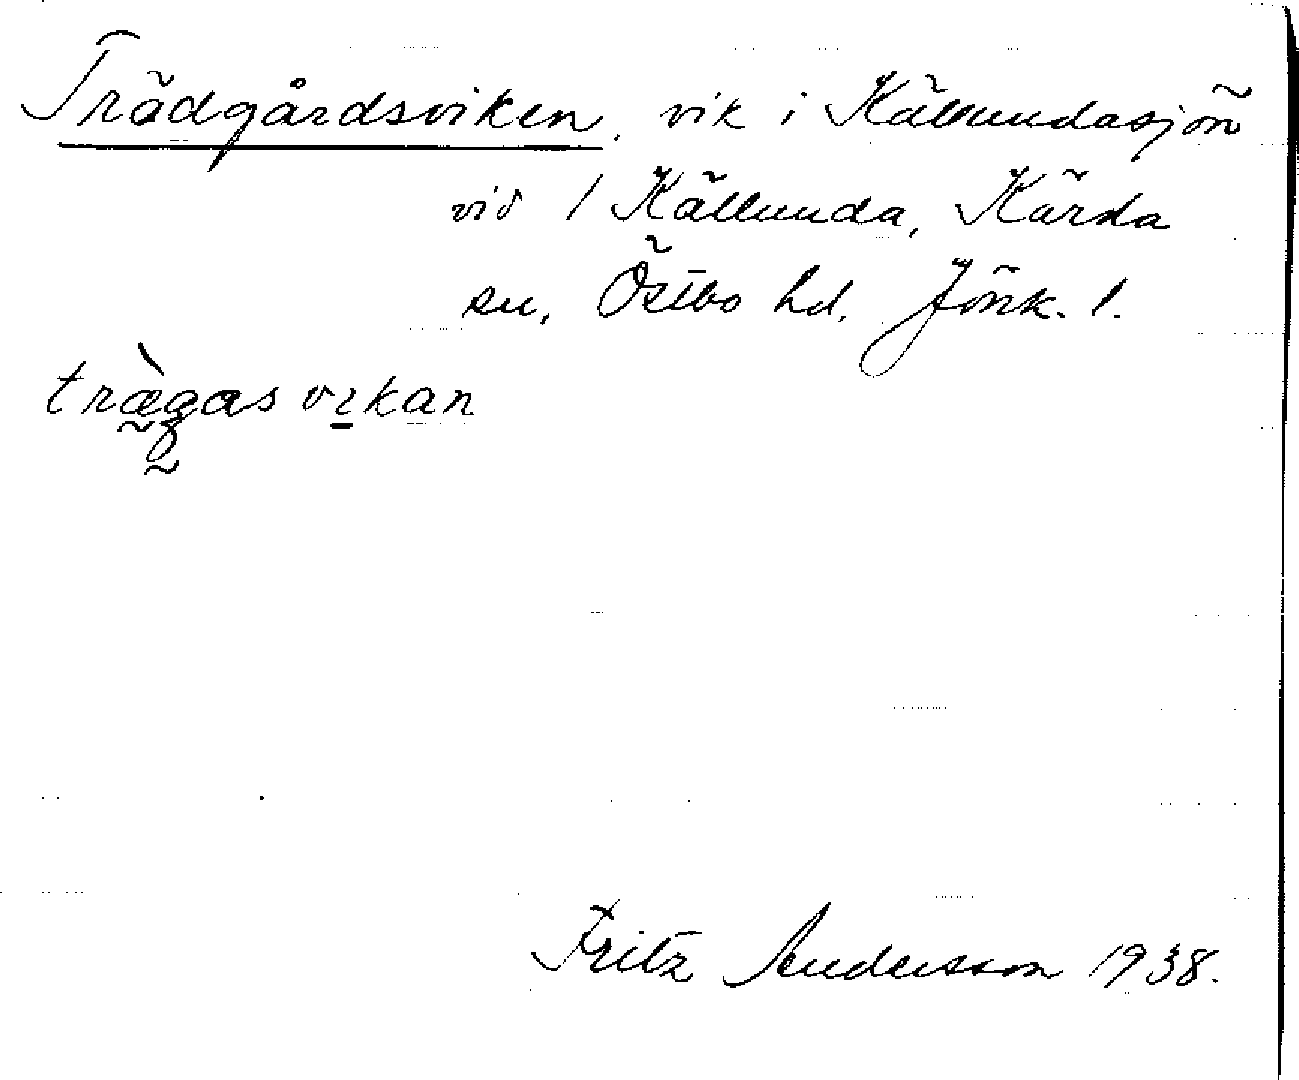 Trädgårdsviken, vik i Källundasjön
vid 1 Källunda, Kärda
sn, Östbo hd. Jönk. l.
træ̀gas vikan
Fritz Andersson 1938.